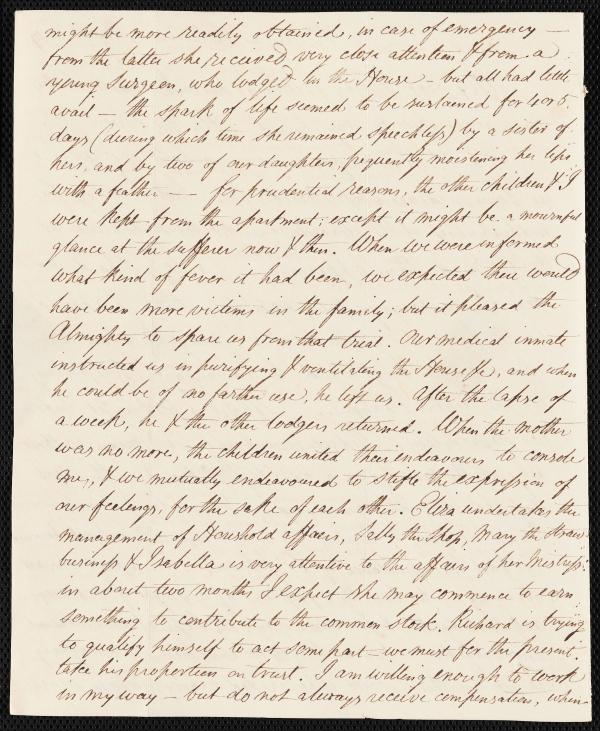 might be more readily obtained, in case of emergency —
from the latter she received very close attention & from a
young Surgeon, who lodged in the House – but all had little
avail – the spark of life seemed to be sustained for 4 or 5
days (during which time she remained speechless) by a sister of
hers, and by two of our daughters, frequently moistening her lips
with a feather —— for prudential reasons, the other children & I
were kept from the apartment; except it might be a mournful
glance at the sufferer now & then. When we were informed
what kind of fever it had been, we expected there would
have been more victims in the family; but it pleased the
Almighty to spare us from that trial. Our medical inmate
instructed us in purifying & ventilating the House &c, and when
he could be of no farther use, he left us. After the lapse of
a week, he & the other lodgers returned. When the mother
was no more, the children united their endeavours to console
me, & we mutually endeavoured to stifle the expression of
our feelings, for the sake of each other. Eliza undertakes the
management of Houshold affairs, Sally the Shop, Mary the straw
business & Isabella is very attentive to the affairs of her Mistress;
in about two months I expect she may commence to earn
something to contribute to the common stock. Richard is trying
to qualify himself to act some part – we must for the present
take his proportion on trust. I am willing enough to work
in my way – but do not always receive compensation, when